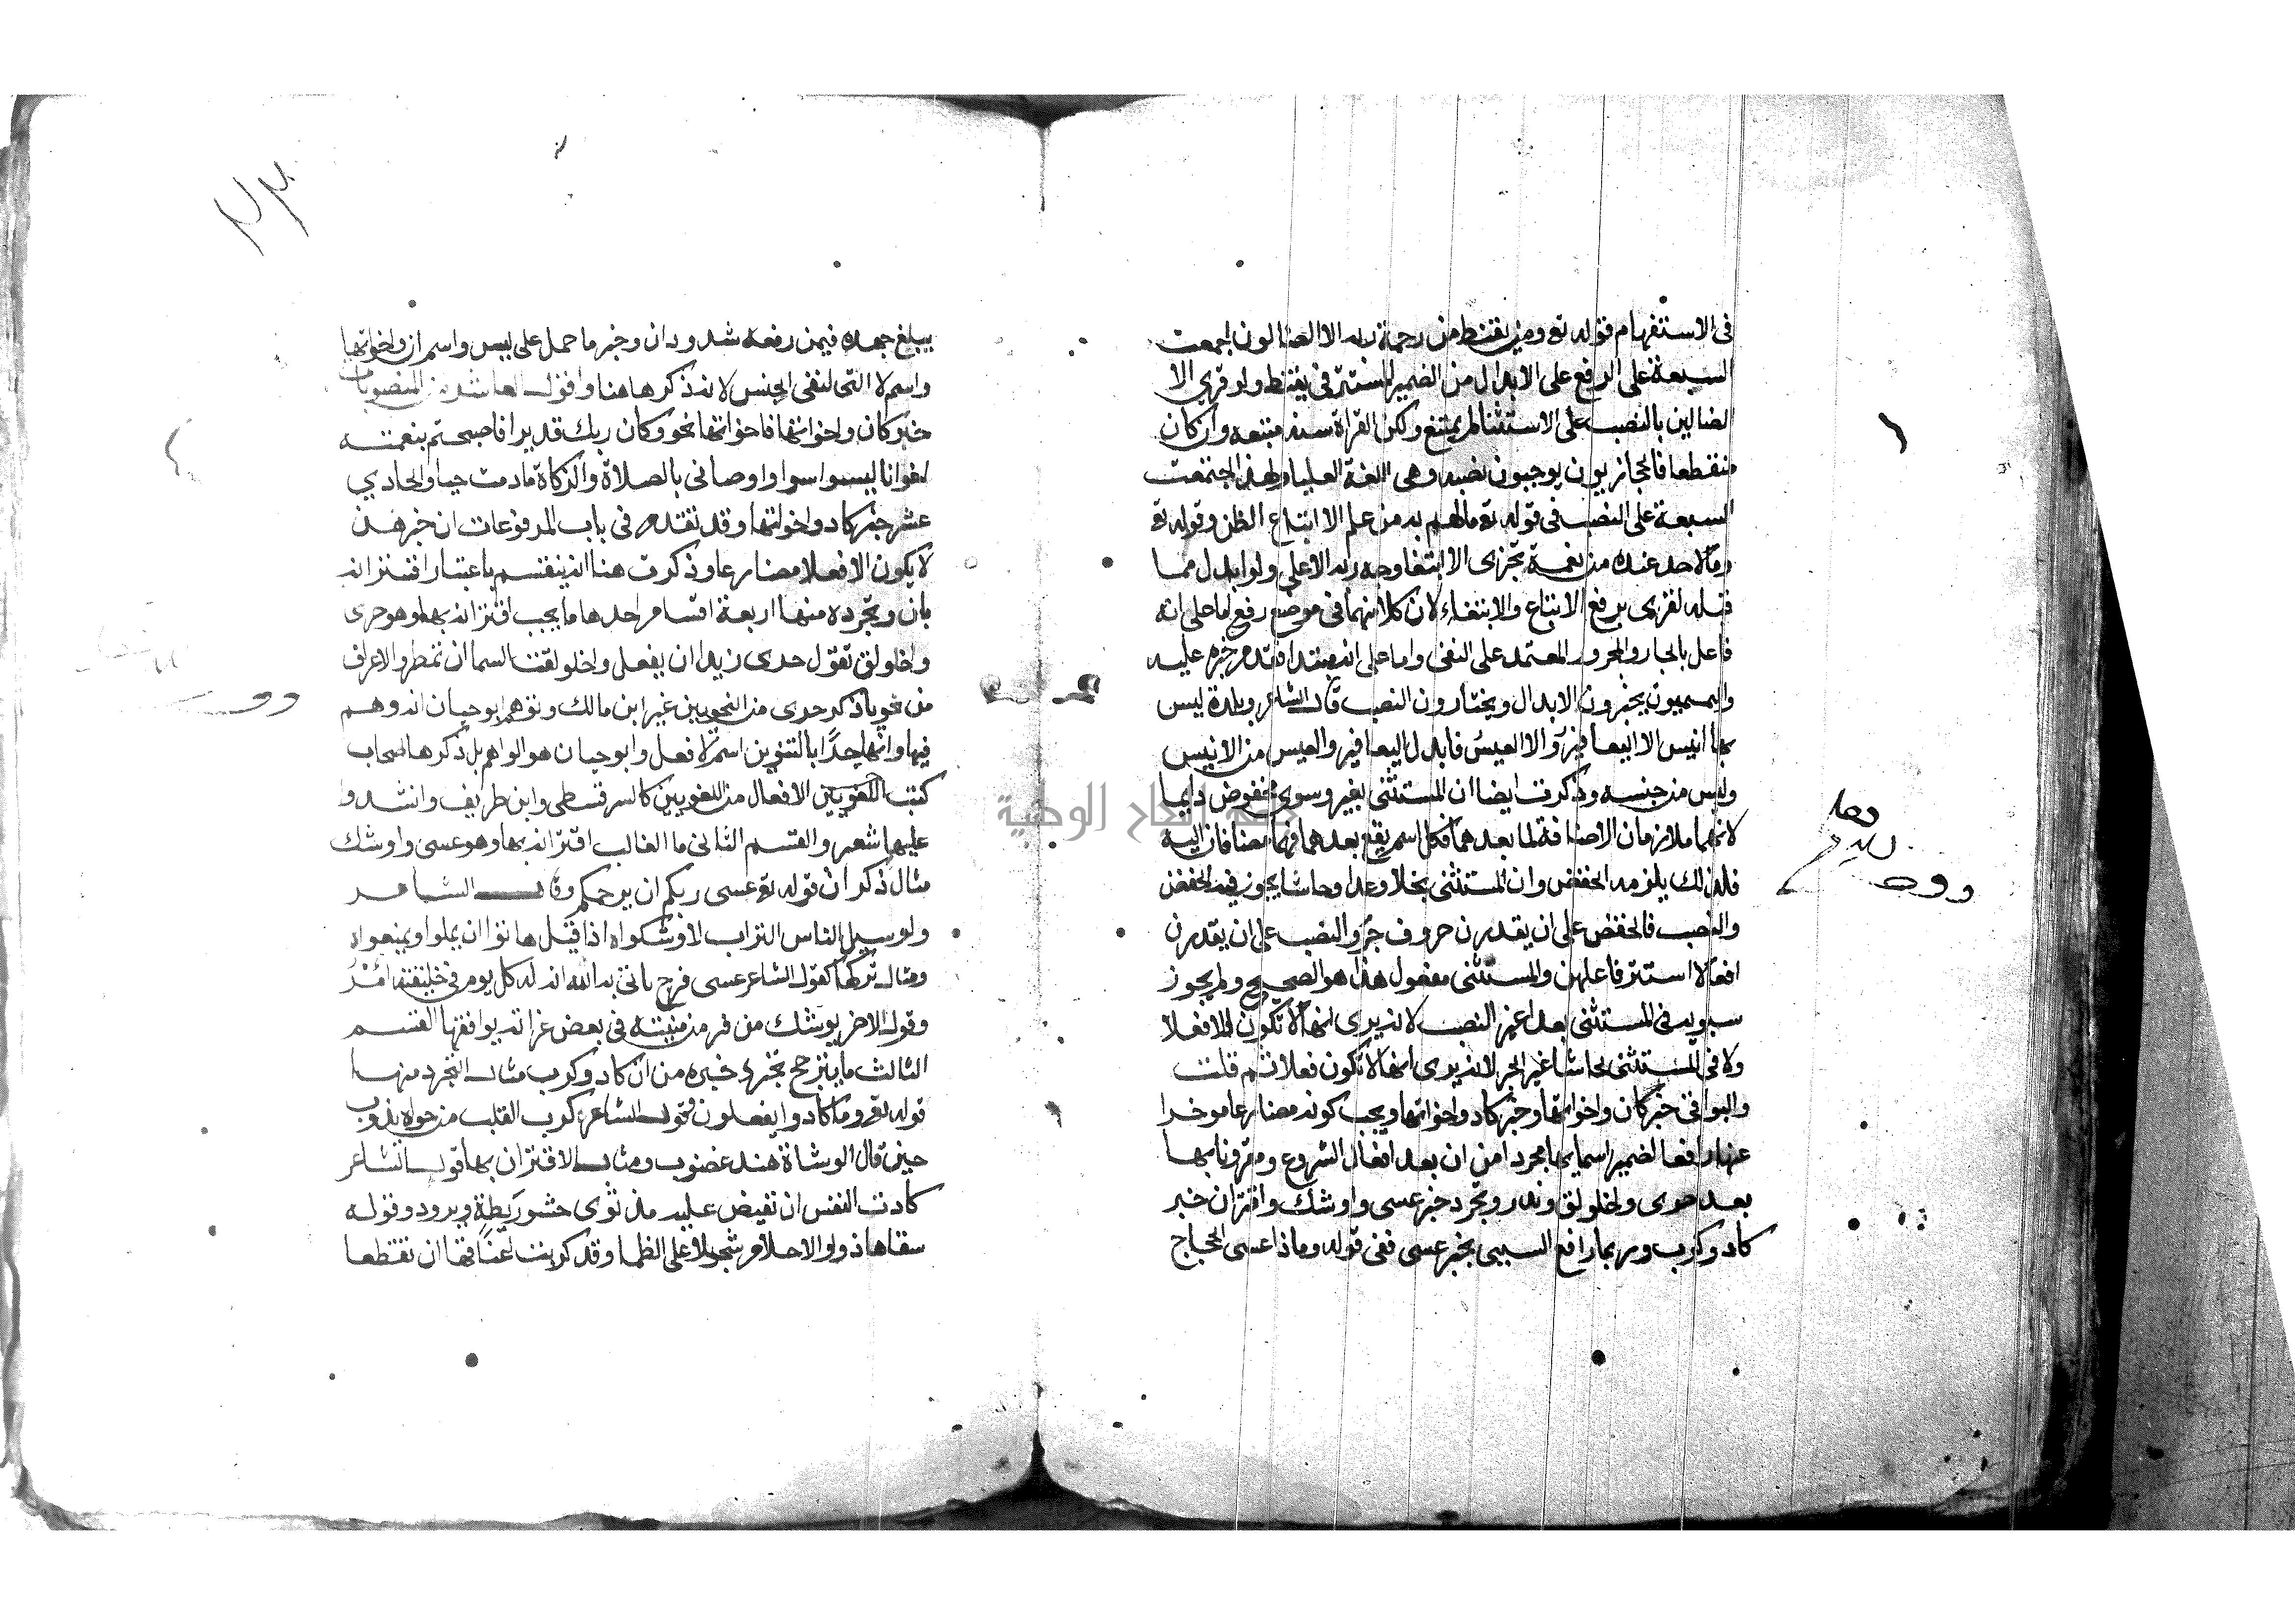 في الاستفهام قوله تع ومن يقنط من رحمة ربه الا الضالون اجمعت
السبعة على الرفع على الابدال من الضمير المستتر في يقنط ولو قرئ الا
الضالين بالنصب على الاستثنا لم يمتنع ولكن القراة سنة متبعة وان كان
منقطعا فالحجازيون يوجبون نصبه وهى اللغة العليا ولهذا اجتمعت
السبعة على النصب في قوله تع مالهم به من علم الا اتباع الظن وقوله تع
وما لاحد عنده من نعمة تجزى الا ابتغا وجه ربه الاعلى ولو ابدل مما
قبله لقرى برفع الاتباع والابتغاء لان كلا منهما في موضع رفع اما على انه
فاعل بالجار والمجرور المعتمد على النفى واما على انه مبتدا تقدم خبره عليه
والتميميون يجيزون الابدال ويختارون النصب قال الشاعر وبلدة ليس
بها انيس الا اليعافيرُ والا العيسُ فابدل اليعافير والعيس من الانيس
وليس من جنسه وذكرت ايضا ان المستثنى بغير وسوى مخفوض دايما
لانهما ملازمان الاضافة لما بعدهما فكل اسم يقع بعدهما فهما مضافان اليه
فلذلك يلزمه الخفض وان المستثنى بخلا وعدا وحاشا يجوز فيه الخفض
والنصب فالخفض على ان يقدرن حروف جرٍ والنصب على ان يقدرن
افعالا استتر فاعلهن والمستثنى مفعول هذا هو الصحيح ولم يجوز
سيبويه في المستثنى بعدا غير النصب لانه يرى انها لا تكون الا فعلا
ولا في المستثنى بحاشا غير الجر لانه يرى انها لا تكون فعلا ثم قلت
والبواقى خبر كان واخواتها وخبر كاد واخواتها ويجب كونه مضارعا موخرا
عنها رافعا لضمير اسمايها مجردا من ان بعد افعال الشروع ومقرونا بها
بعد حرى واخلولق وندر تجرد خبر عسى واوشك واقتران خبر
كاد وكرب وربما رافع السببى بخبر عسى ففى قوله وماذا عسى الحجاج
يبلغ جهده فيمن رفعه شذوذان وخبر ما حمل على ليس واسم ان واخواتها
واسم لا التى لنفى الجنس لانه ذكرها هنا واقول العاشر من المنصوبات
خبر كان واخواتها فاخواتها نحو وكان ربك قديرا فاصبحتم بنعمته
اخوانا ليسوا سوا واوصانى بالصلاة والزكاة مادمت حيا والحادي
عشر خبر كاد واخواتها وقد تقدم في باب المرفوعات ان خبرهن
لا يكون الا فعلا مضارعا وذكرت هنا انه ينقسم باعتبار اقترانه
بان وتجرده منها اربعة اقسام احدها ما يجب اقترانه بها وهو حرى
واخلولق تقول حرى زيد ان يفعل واخلولقت السما ان تمطر ولا اعرف
من ذكر حرى من النحويين غير ابن مالك وتوهم ابوحيان انه وهم
فيها وانها حرًا بالتنوين اسم لا فعل وابوحيان هو الواهم بل ذكرها اصحاب
كتب الافعال من اللغويين كالسرقسطى وابن طريف وانشدوا
عليها شعر والقسم الثانى ما الغالب اقترانه بها وهو عسى واوشك
مثال ذكر ان قوله تع عسى ربكم ان يرحمكم وقال الشاعر
ولو سيل الناس التراب لاوشكوا اذا قيل هاتوا ان يملوا ويمنعوا
ومثال تركها كقول الشاعر عسى فرج ياتى به الله انه له كل يوم فى خليقته امْرُ
وقول الاخر يوشك من فر من منيته في بعض غراته يوافقها القسم
الثالث ما يترجح تجرد خبره من ان كاد وكرب مثال التجرد منها
قوله تع وما كادوا يفعلون وقول الشاعر كرب القلب من جواه يذوب
حين قال الوشاة هند غضوب ومثال الاقتران بها قول الشاعر
كادت النفس ان تفيض عليه مذ ثوى حشو رَيطة وبرود وقوله
سقاها ذوو الاحلام سجلا على الظما وقد كربت اعناقها ان تقطعا